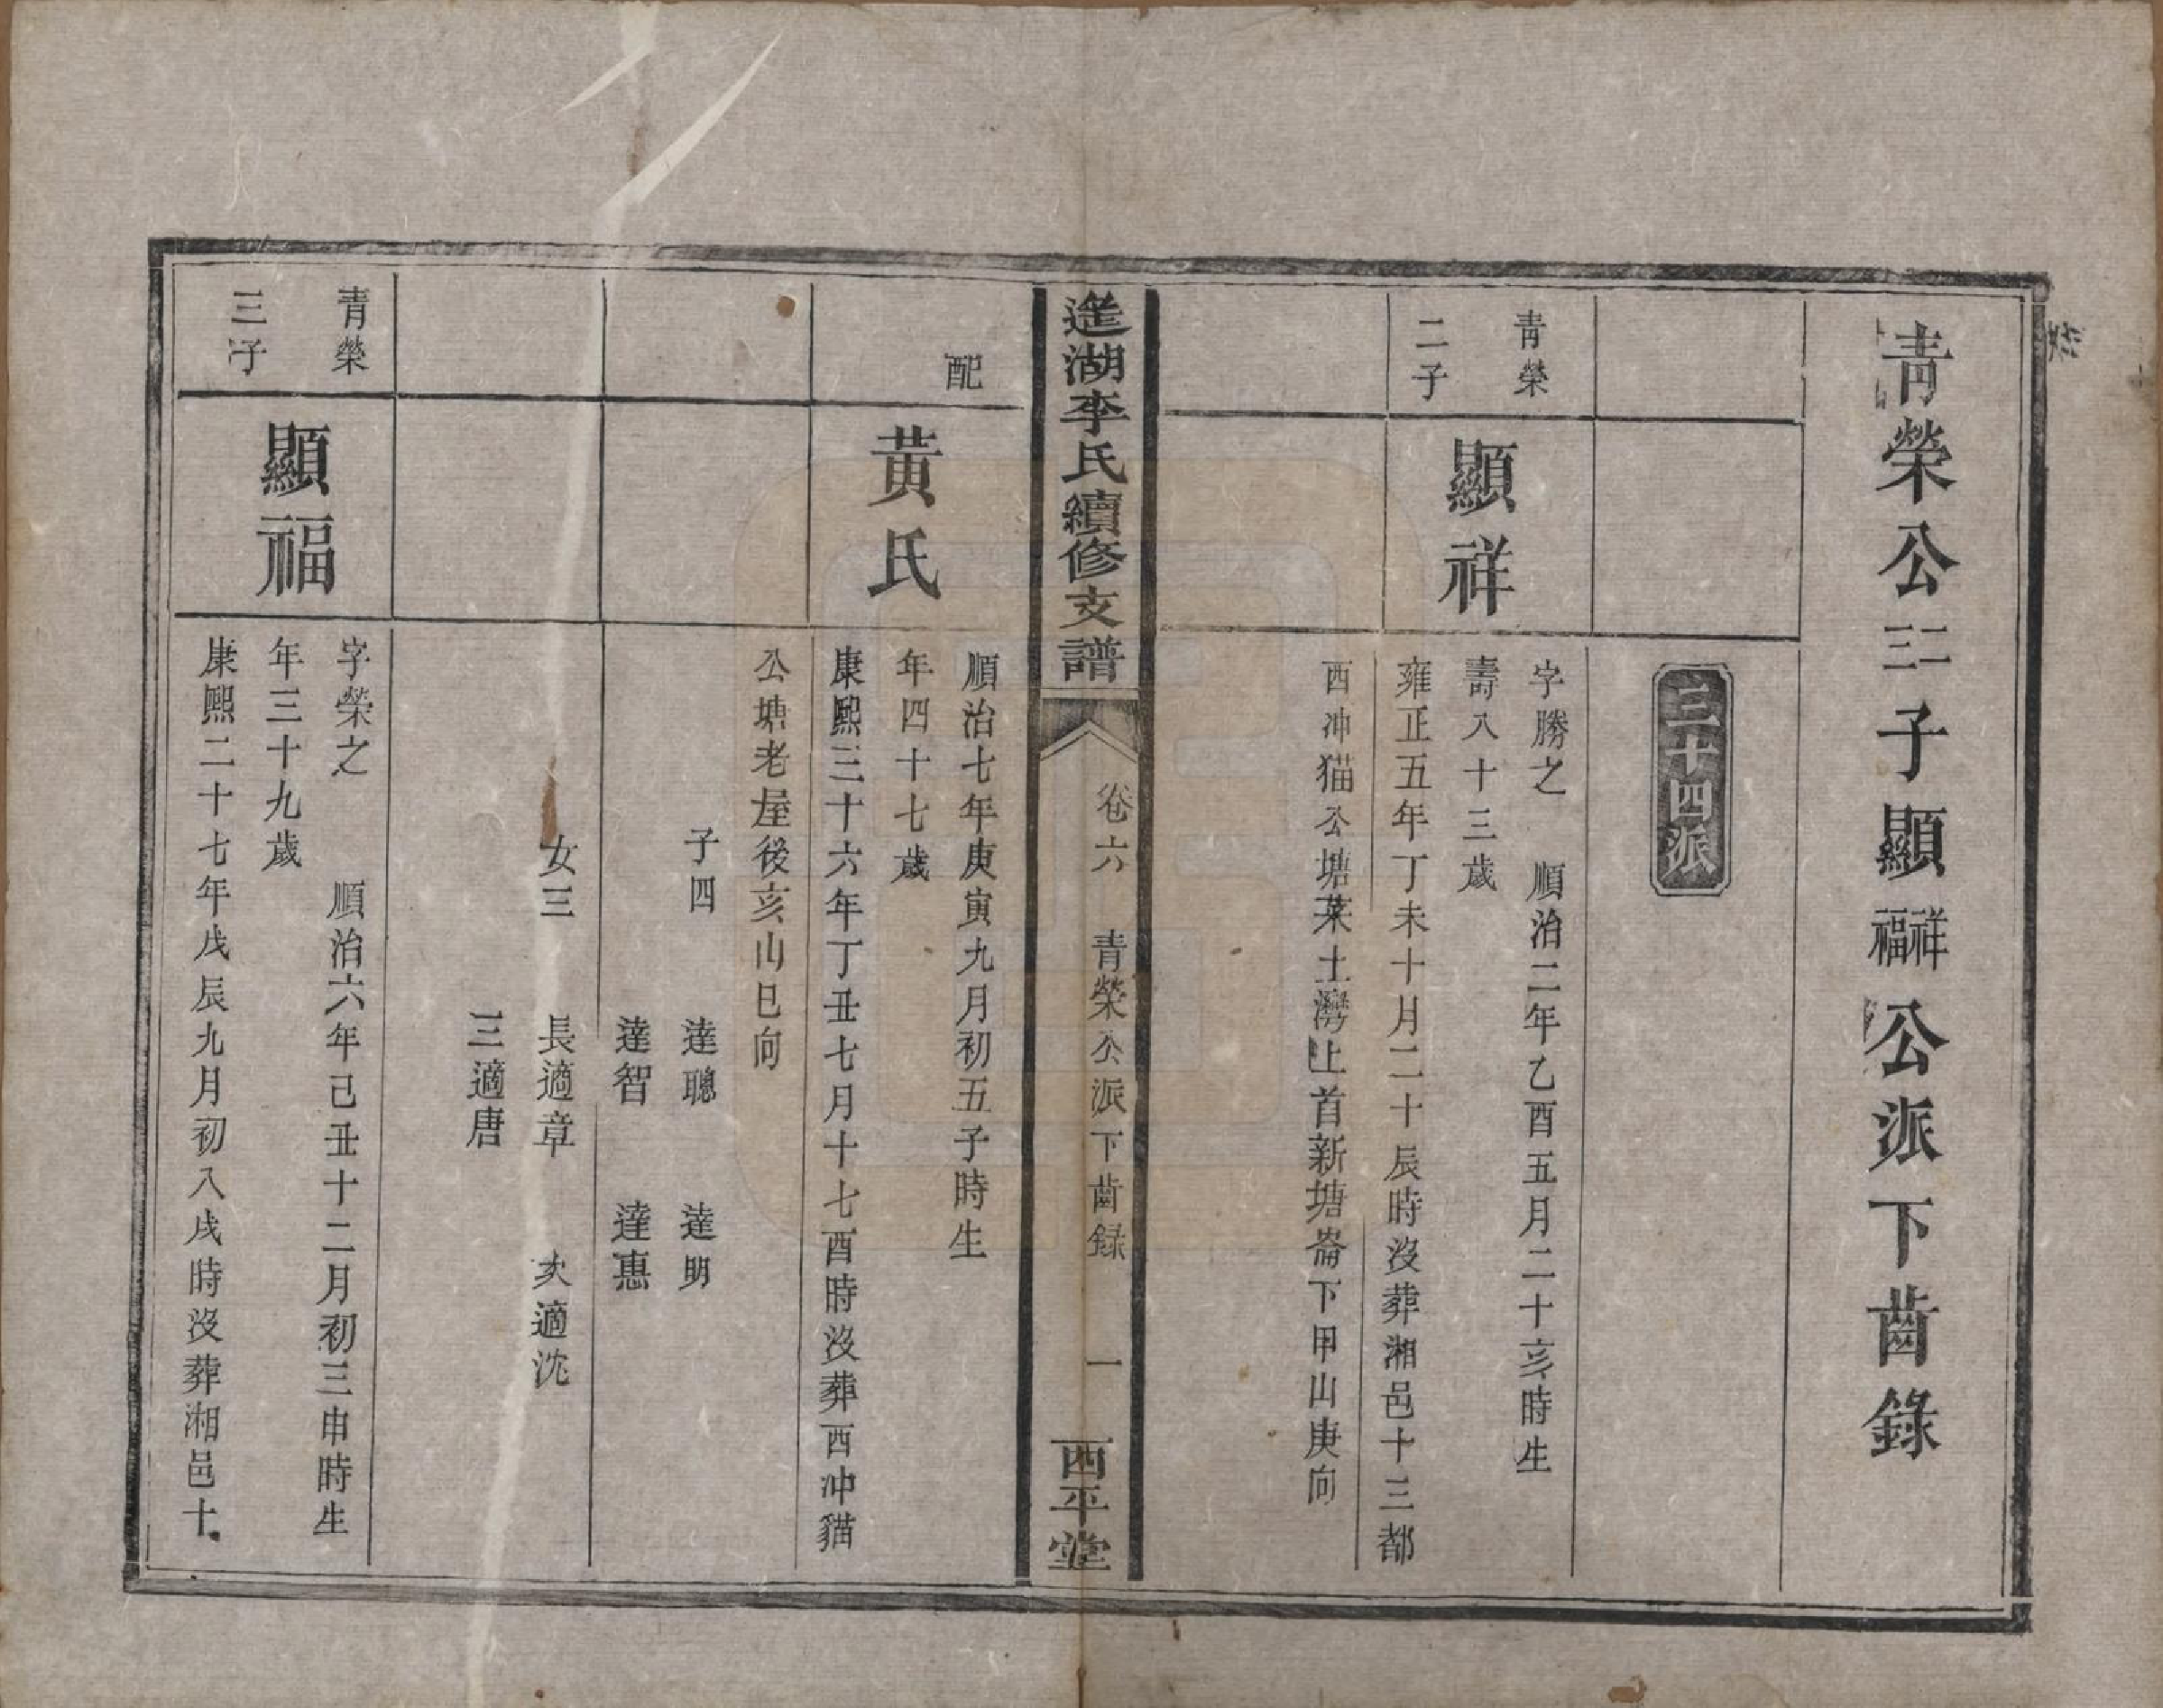 青榮公二三子顯祥福公派下齒錄
三十四派
青榮
二子
顯祥
字勝之　順治二年乙酉五月二十亥時生
壽八十三歲
雍正五年丁未十月二十辰時沒葬湘邑十三都
西冲猫公塘菜土灣上首新塘崙下甲山庚向
李氏續修支譜
卷六　青榮公派下齒錄　一
西平堂
配
黃氏
順治七年庚寅九月初五子時生
年四十七歲
康熙三十六年丁丑七月十七酉時沒葬西冲貓
公塘老屋後亥山巳向
子四　達聰　達明
達智　達惠
女三　長適章　次適沈
三適唐
青榮
三子
顯福
字榮之　順治六年己丑十二月初三申時生
年三十九歲
康熙二十七年戊辰九月初八戌時沒葬湘邑十